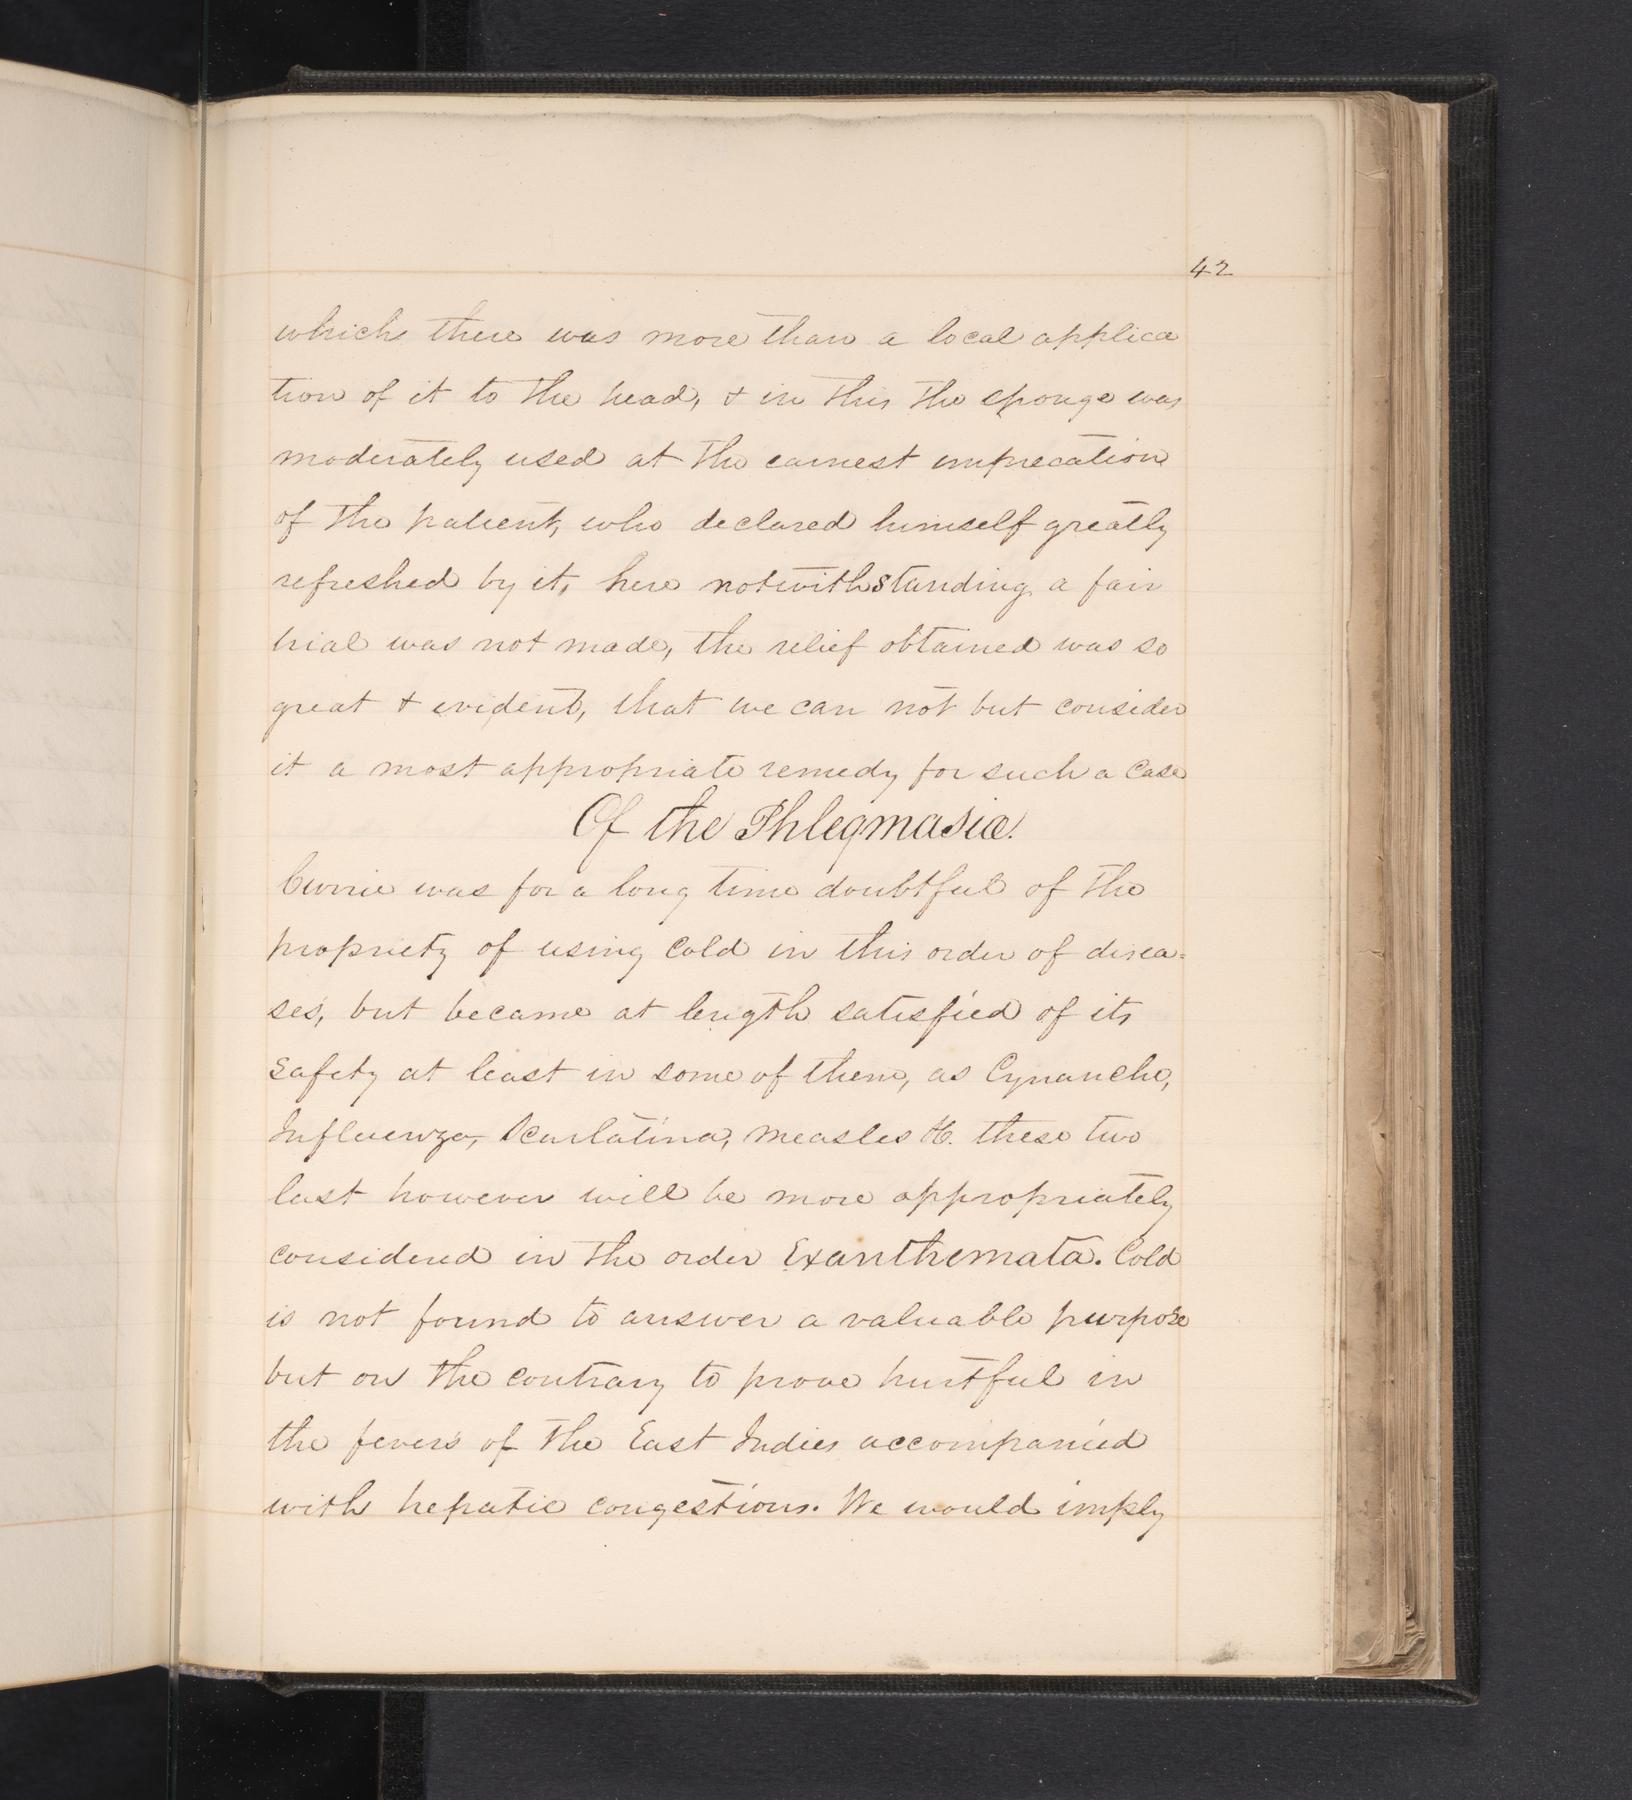 42
which there was more than a local applica
tion of it to the head, & in this the sponge was
moderately used at the earnest imprecation
of the patient, who declared himself greatly
refreshed by it, here notwithstanding a fair
trial was not made, the relief obtained was so
great & evident, that we can not but consider
it a most appropriate remedy for such a case
Of the Phlegmasiæ.
Currie was for a long time doubtful of the
propriety of using Cold in this order of disea-
ses, but became at length satisfied of its
safety at least in some of them, as Cynanche,
Influenza, Scarlatina, measles &c. these two
last however will be more appropriately
considered in the order Exanthemata. Cold
is not found to answer a valuable purpose
but on the contrary to prove hurtful in
the fevers of the East Indies accompanied
with hepatic congestions. We would imply